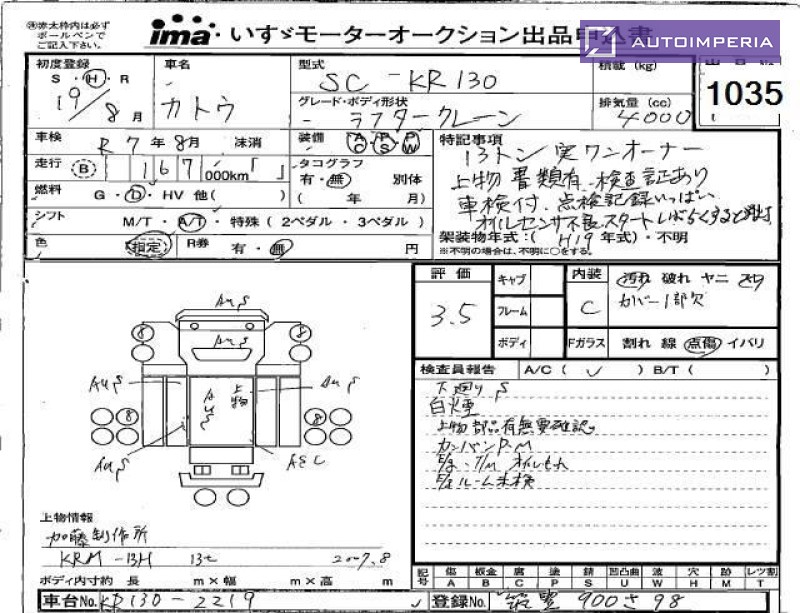 ㊟赤太枠内は必ず
ボールペンで
ご記入下さい。
ima いすゞモーターオークション出品申込書
AUTOIMPERIA
初度登録
S・H・R
19/8月
車名
カトウ
型式
SC-KR130
グレード・ボディ形状
ラフタークレーン
積載(kg)
排気量(cc)
4000
1035
車検
R 7年8月 抹消
装備
特記事項
13トン 実ワンオーナー
上物書類有 検査証あり
車検付 点検記録いっぱい
走行 B 167,000km「 」
タコグラフ
有・無 別体
( 年 月)
燃料 G・D・HV 他( )
シフト M/T・A/T・特殊(2ペダル・3ペダル)
架装物年式:( H19年式)・不明
※不明の場合は、不明に○をする。
色 指定 R券 有・無 円
評価
3.5
キャブ
フレーム
ボディ
内装
C
汚れ 破れ ヤニ スリ
カバー1部欠
Fガラス 割れ 線 点傷 イバリ
検査員報告 A/C( ✓ ) B/T( )
下廻り S
白煙
上物部品有無要確認。
カンバンP.M
E/g・T/M オイルもれ
E/gルーム未検
AuS
AuS
8
8
AuS
AuS
AuS
上物
8
8
AuS
ASC
上物情報
加藤製作所
KRM-13H 13t 2007,8
ボディ内寸約 長 m×幅 m×高 m
記号 傷A 板金B 腐C 塗P 錆S 凹凸曲U 波W 穴H 跡M レツ割T
車台No. KR130-2219
登録No. 筑豊 900さ98